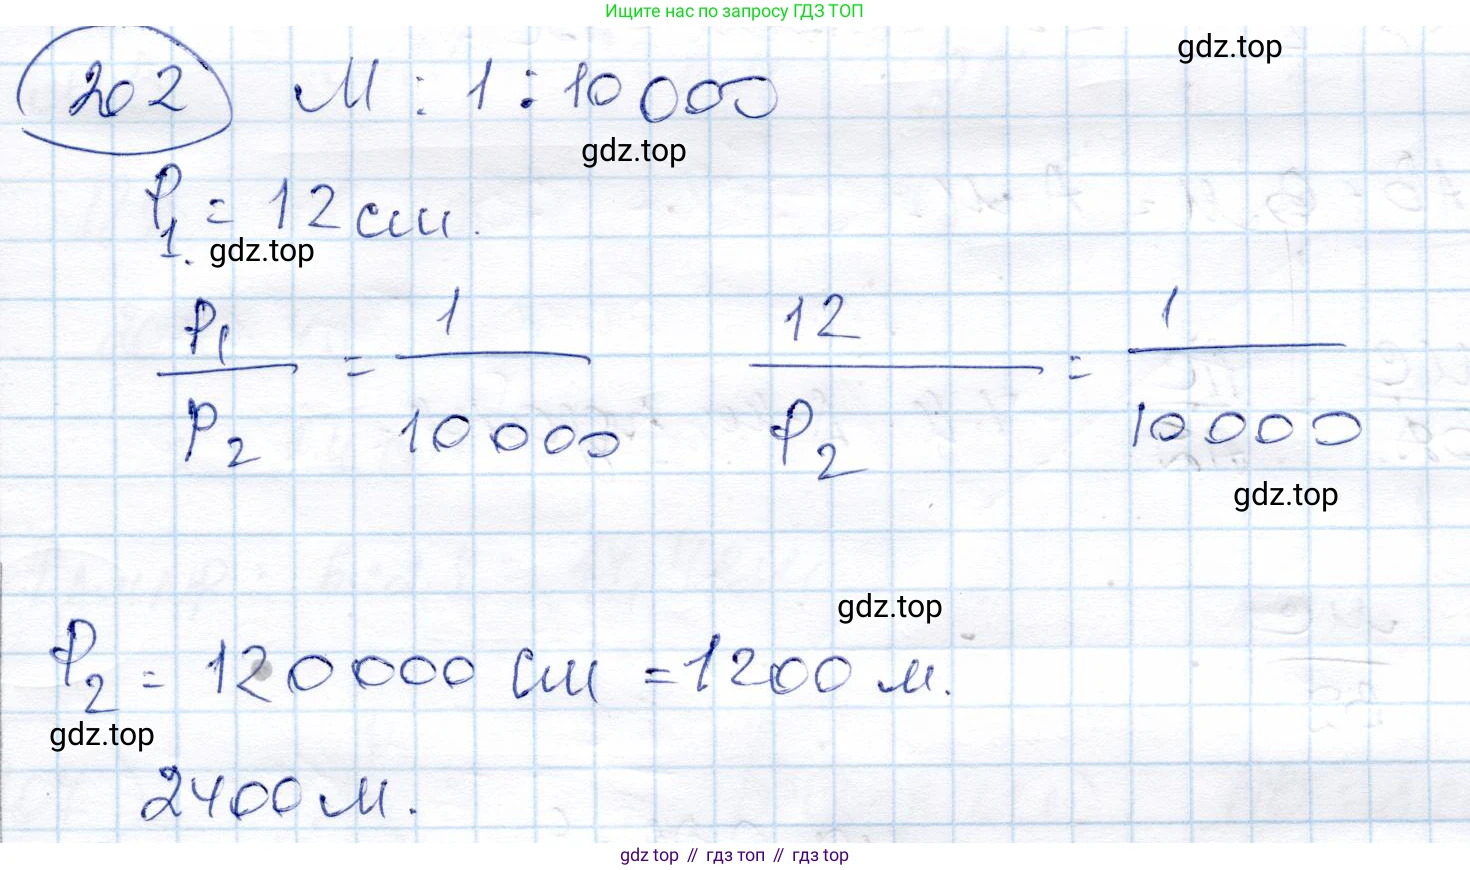 Ищите нас по запросу ГДЗ ТОП
gdz.top
202 М : 1 : 10 000
gdz.top
P₁ = 12 см.
gdz.top
P₁/P₂ = 1/10 000 12/P₂ = 1/10 000
gdz.top
gdz.top
P₂ = 120 000 см = 1200 м.
gdz.top
2400 м.
gdz top // гдз топ // гдз top